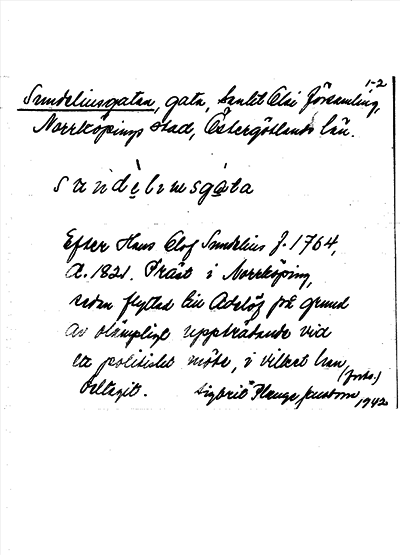 1-2
Sundeliusgatan, gata, Sankt Olai församling,
Norrköpings stad, Östergötlands län.
sundéliusgàta
Efter Hans Olof Sundelius f. 1764,
d. 1821. Präst i Norrköping,
sedan flyttad till Adelöf på grund
av olämpligt uppträdande vid
ett politiskt möte, i vilket han
deltagit. (forts.)
Sigbrit Plaenge Jacobson
1942